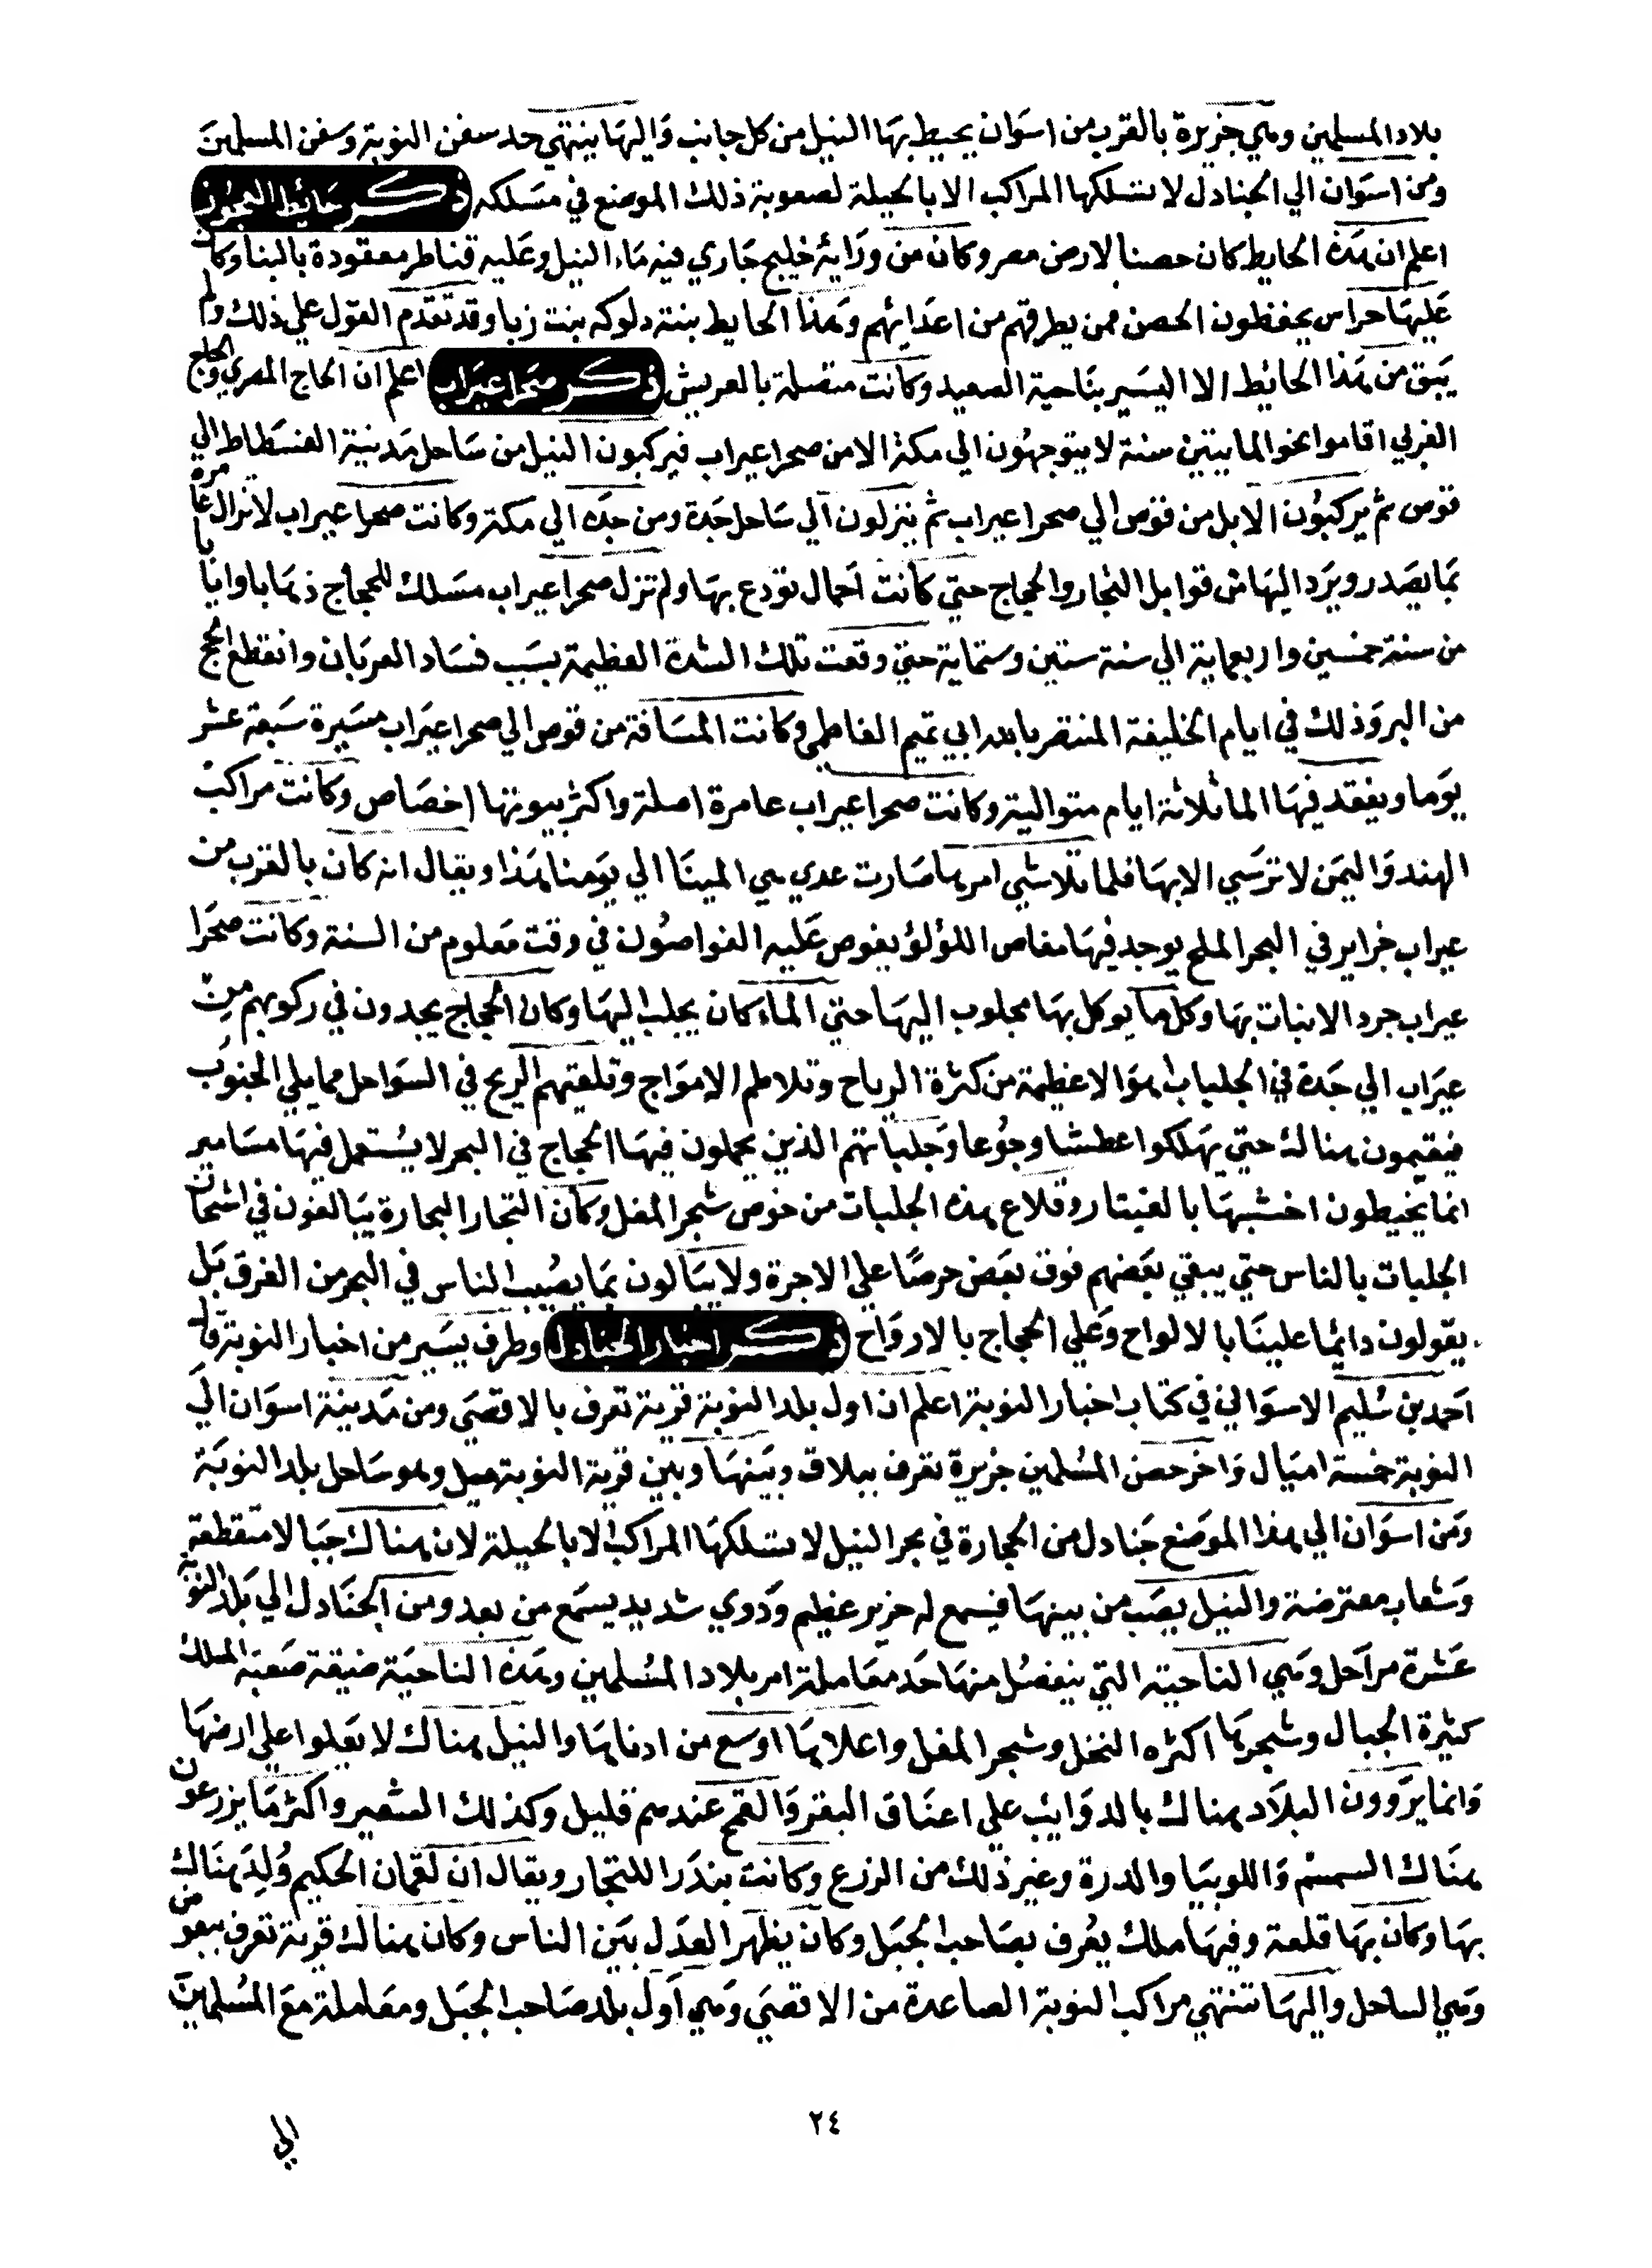 بلاد المسلمين وهي جزيرة بالقرب من اسوان يحيط بها النيل من كل جانب واليها ينتهي حد سفن النوبة وسفن المسلمين
ومن اسوان الي الجنادل لا تسلكها المراكب الا بالحيلة لصعوبة ذلك الموضع في مسلكه ذكر حائط العجوز
اعلم ان هذه الحايط كان حصنا لارض مصر وكان من ورايه خليج جاري فيه ماء النيل وعليه قناطر معقودة بالبنا وكان
عليها حراس يحفظون الحصن ممن يطرقهم من اعدايهم وهذا الحايط بنته دلوكه بنت زبا وقد تقدم القول علي ذلك ولم
يبق من هذا الحائط الا اليسير بناحية الصعيد وكانت متصلة بالعريش ذكر صحرا عيراب اعلم ان الحاج المصري والحاج
الغربي اقاموا نحوا لمايتين سنة لا يتوجهون الي مكة الا من صحرا عيراب فيركبون النيل من ساحل مدينة الفسطاط الي
قوص ثم يركبون الابل من قوص الي صحرا عيراب ثم ينزلون الي ساحل جدة ومن جده الي مكة وكانت صحرا عيراب لا تزال عامرة
بما يصدر ويرد اليها من قوابل التجار والحجاج حتي كانت احمال تودع بها ولم تزل صحرا عيراب مسلك للحجاج ذهابا وايابا
من سنة خمسين واربعماية الي سنة ستين وستماية حتي وقعت تلك الشدة العظيمة بسبب فساد العربان وانقطع الحج
من البر وذلك في ايام الخليفة المنتصر بالله ابي تميم الفاطمي وكانت المسافة من قوص الي صحرا عيراب مسيرة سبعة عشر
يوما ويفقد فيها الما ثلاثة ايام متوالية وكانت صحرا عيراب عامرة اهلة واكثر بيوتها اخصاص وكانت مراكب
الهند واليمن لا ترسي الا بها فلما تلاشي امرها صارت عدي هي المينا الي يومنا هذا ويقال انه كان بالقرب من
عيراب جزاير في البحر الملح يوجد فيها مغاص اللؤلؤ يغوص عليه الغواصون في وقت معلوم من السنة وكانت صحرا
عيراب جرد الانبات بها وكل ما يوكل بها مجلوب اليها حتي الماء كان يجلب اليها وكان الحجاج يجدون في ركوبهم من
عيراب الي جدة في الجلباب اهوالا عظيمة من كثرة الرياح وتلاطم الامواج وتلقيهم الريح في السواحل مما يلي الجنوب
فيقيمون هناك حتي يهلكوا عطشا وجوعا وجلباتهم الذين يحملون فيها الحجاج في البحر لا يستعمل فيها مسامير
انما يخيطون اخشبها بالقيتار وقلاع هذه الجلبات من خوص شجر المقل وكان التجار البحارة يبالغون في اشحان
الجلبات بالناس حتي يبقي بعضهم فوق بعض حرصا علي الاجرة ولا يبالون بما يصيب الناس في البحر من الغرق بل
يقولون دائما علينا بالالواح وعلي الحجاج بالارواح ذكر اخبار الجنادل وطرف يسير من اخبار النوبة قال
احمد بن سليم الاسواني في كتاب اخبار النوبة اعلم ان اول بلد النوبة قرية تعرف بالاقصي ومن مدينة اسوان الي
النوبة خمسة اميال واخر حصن المسلمين جزيرة تعرف ببلاق وبينها وبين قرية النوبة ميل وهو ساحل بلد النوبة
ومن اسوان الي هذا الموضع جنادل من الحجارة في بحر النيل لا تسلكها المراكب الا بالحيلة لان هناك جبالا متقطعة
وشعاب معترضة والنيل يصب من بينها فيسمع له خرير عظيم ودوي شديد يسمع من بعد ومن الجنادل الي بلد النوبة
عشرة مراحل وهي الناحية التي ينفصل منها حد معاملة امر بلاد المسلمين وهذه الناحية ضيقة صعبة المسلك
كثيرة الجبال وشجرها اكثره النخل وشجر المقل واعلاها اوسع من ادناها والنيل هناك لا يعلوا علي ارضها
وانما يروون البلاد هناك بالدوايب علي اعناق البقر والقمح عندهم قليل وكذلك الشعير واكثر ما يزرعون
هناك السمسم واللوبيا والدرة وغير ذلك من الزرع وكانت بندرا للتجار ويقال ان لقمان الحكيم ولد هناك
بها وكان بها قلعة وفيها ملك يعرف بصاحب الجبل وكان يظهر العدل بين الناس وكان هناك قرية تعرف ببعوض
وهي الساحل واليها تنتهي مراكب النوبة الصاعدة من الاقصي وهي اول بلد صاحب الجبل ومعاملة مع المسلمين
٢٤
الي